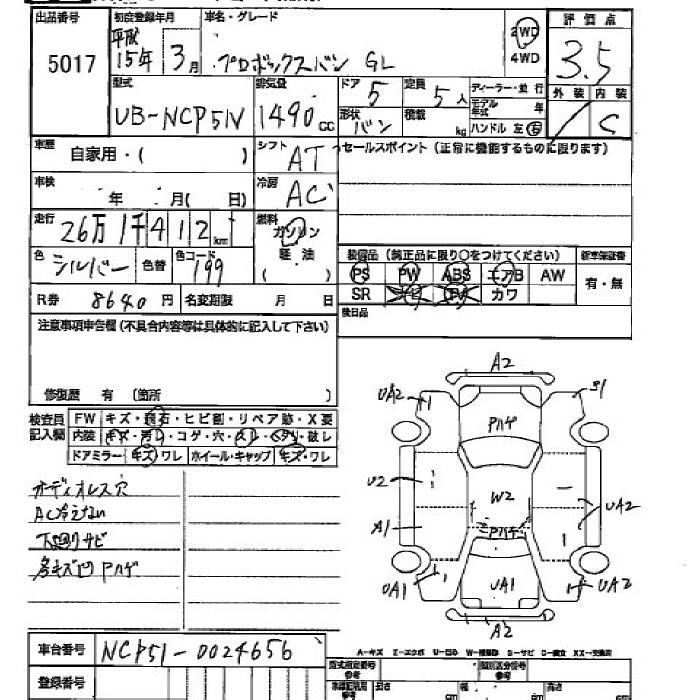 出品番号 初度登録年月 車名・グレード 評価点
5017 平成15年3月 プロボックスバン GL 2WD 4WD 3.5
型式 排気量 ドア 定員 ディーラー・並行 外装 内装
UB-NCP51V 1490cc 5 5人 モデル年式 年 C
形状 バン 積載 kg ハンドル 左 右
車歴 自家用・( ) シフト AT セールスポイント(正常に機能するものに限ります)
車検 年 月( 日) 冷房 AC
走行 26万1千412km 燃料 ガソリン
軽油
( )
装備品(純正品に限り○をつけてください) 新車保証書
色 シルバー 色替 色コード 199
PS PW ABS エアB AW 有・無
SR ナビ TV カワ
R券 8640円 名変期限 月 日
後日品
注意事項申告欄(不具合内容等は具体的に記入して下さい)
修復歴 有 (箇所 )
検査員記入欄 FW キズ・飛石・ヒビ割・リペア跡・X要
内装 キズ・汚れ・コゲ・穴・スレ・ヘタリ・破レ
ドアミラー キズ・ワレ ホイール・キャップ キズ・ワレ
オーディオレス穴
AC冷えない
下廻りサビ
各キズ凹 Pハゲ
A2
UA2
S1
Pハゲ
U2
W2
UA2
A1
Pハゲ
UA1
UA1
UA2
A2
車台番号 NCP51-0024656
A-キズ Z-エクボ U-凹み W-補修跡 S-サビ C-腐食 XX-交換済
登録番号
型式指定番号 類別区分番号
長さ cm 幅 cm 高さ cm